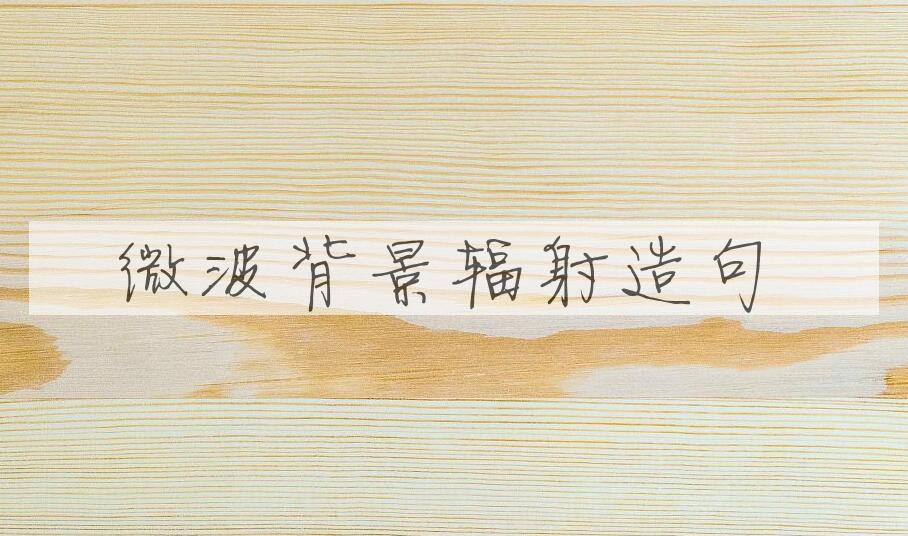 微波背景辐射造句